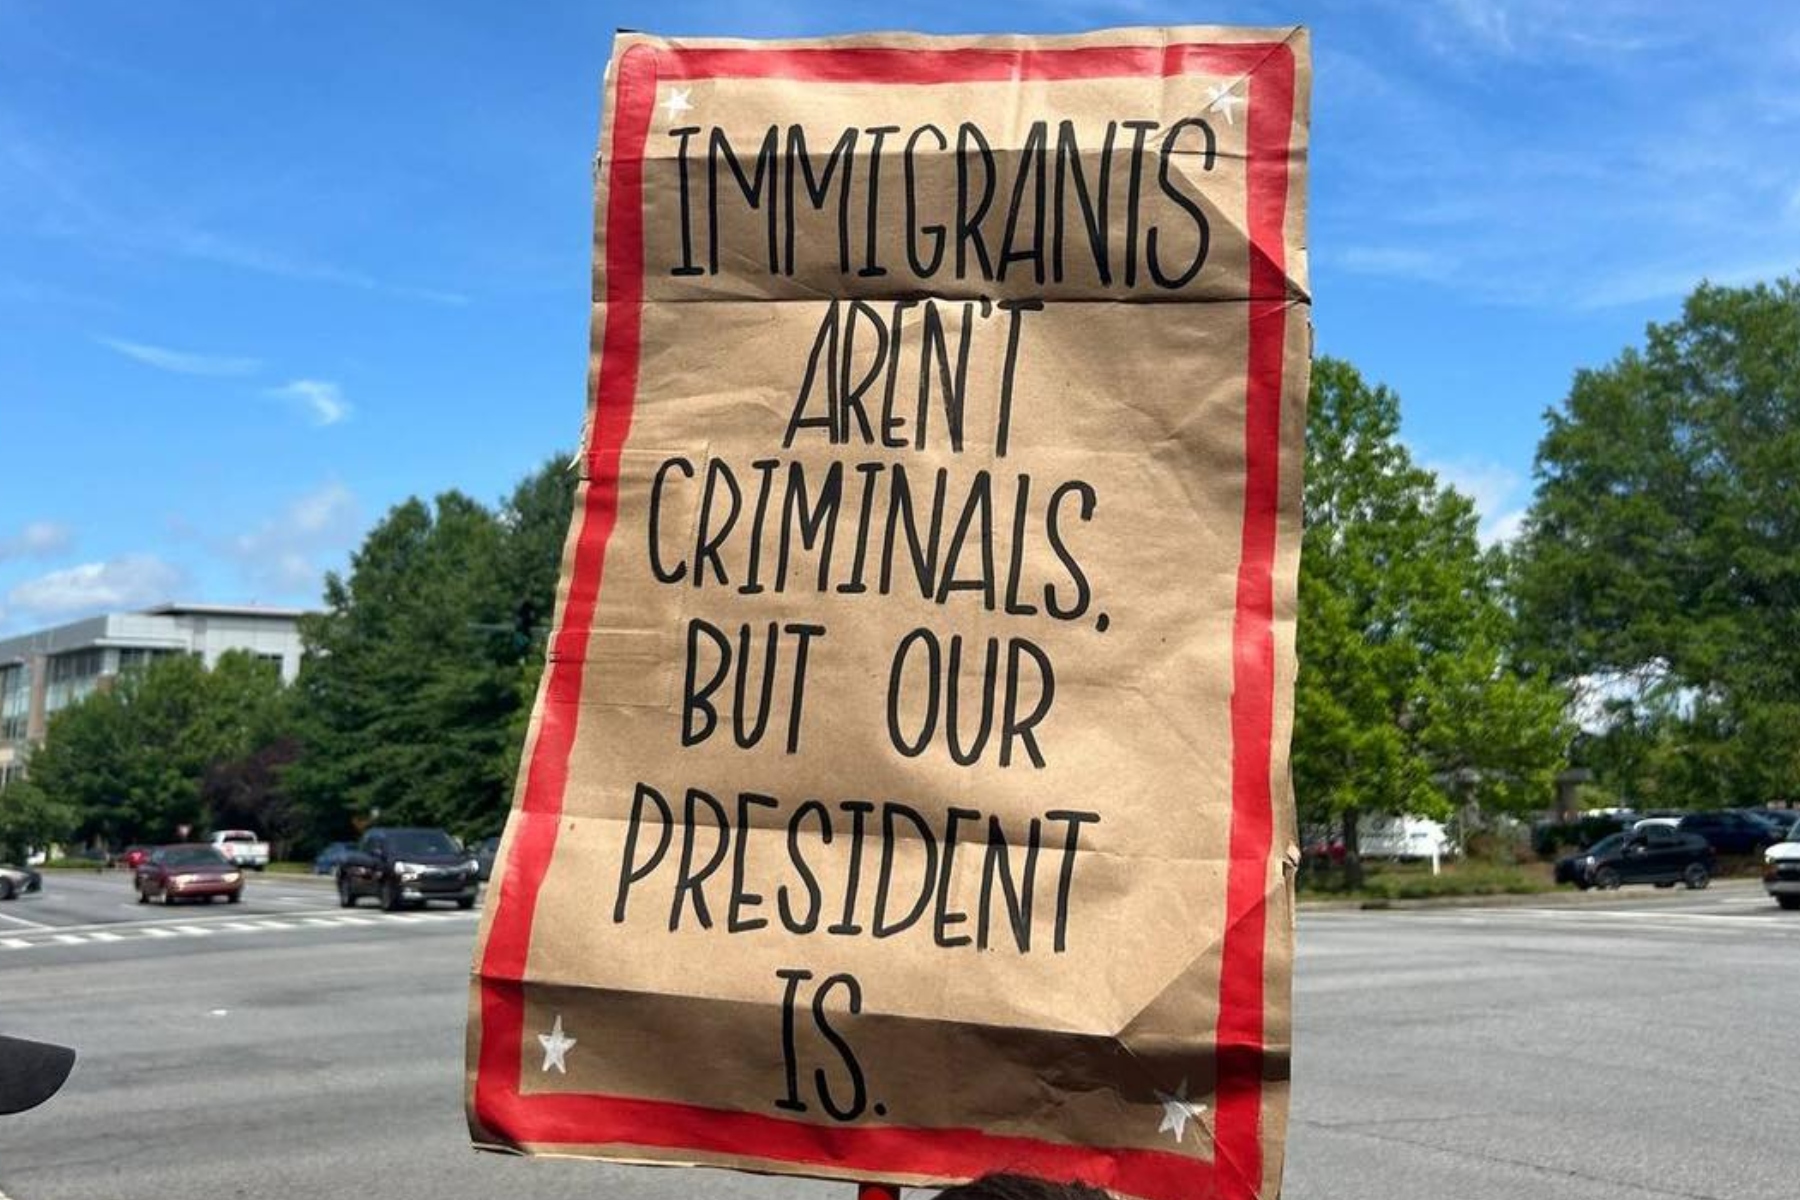 IMMIGRANTS
AREN'T
CRIMINALS,
BUT OUR
PRESIDENT
IS.